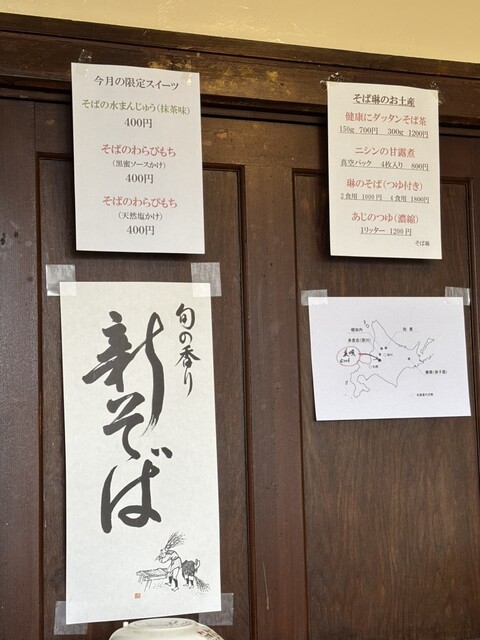 今月の限定スイーツ
そばの水まんじゅう(抹茶味)
400円
そばのわらびもち
(黒蜜ソースかけ)
400円
そばのわらびもち
(天然塩かけ)
400円
そば琳のお土産
健康にダッタンそば茶
150g 700円 300g 1200円
ニシンの甘露煮
真空パック 4枚入り 800円
琳のそば(つゆ付き)
2食用 1000円 4食用 1800円
あじのつゆ(濃縮)
1リッター 1200円
そば琳
旬の香り
新そば